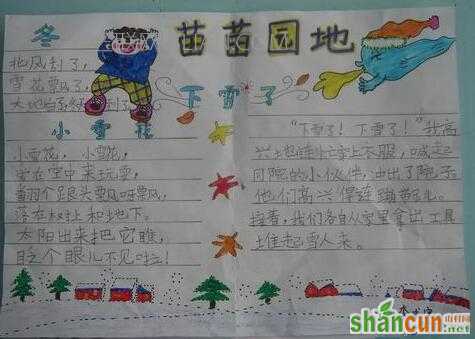 冬
苗苗园地
北风到了,
雪花飘了,
下雪了
小雪花
小雪花,小雪花,
在空中来玩耍,
翻个跟头飘呀飘,
落在树上和地下。
太阳出来把它瞧,
眨个眼儿不见啦!
"下雪了!下雪了!"我高
兴地连忙穿上衣服,喊起
同院的小伙伴,冲出了院子
他们高兴得
接着,我们各自从家里拿出工具
堆起雪人来。
shancun
山村网
.net